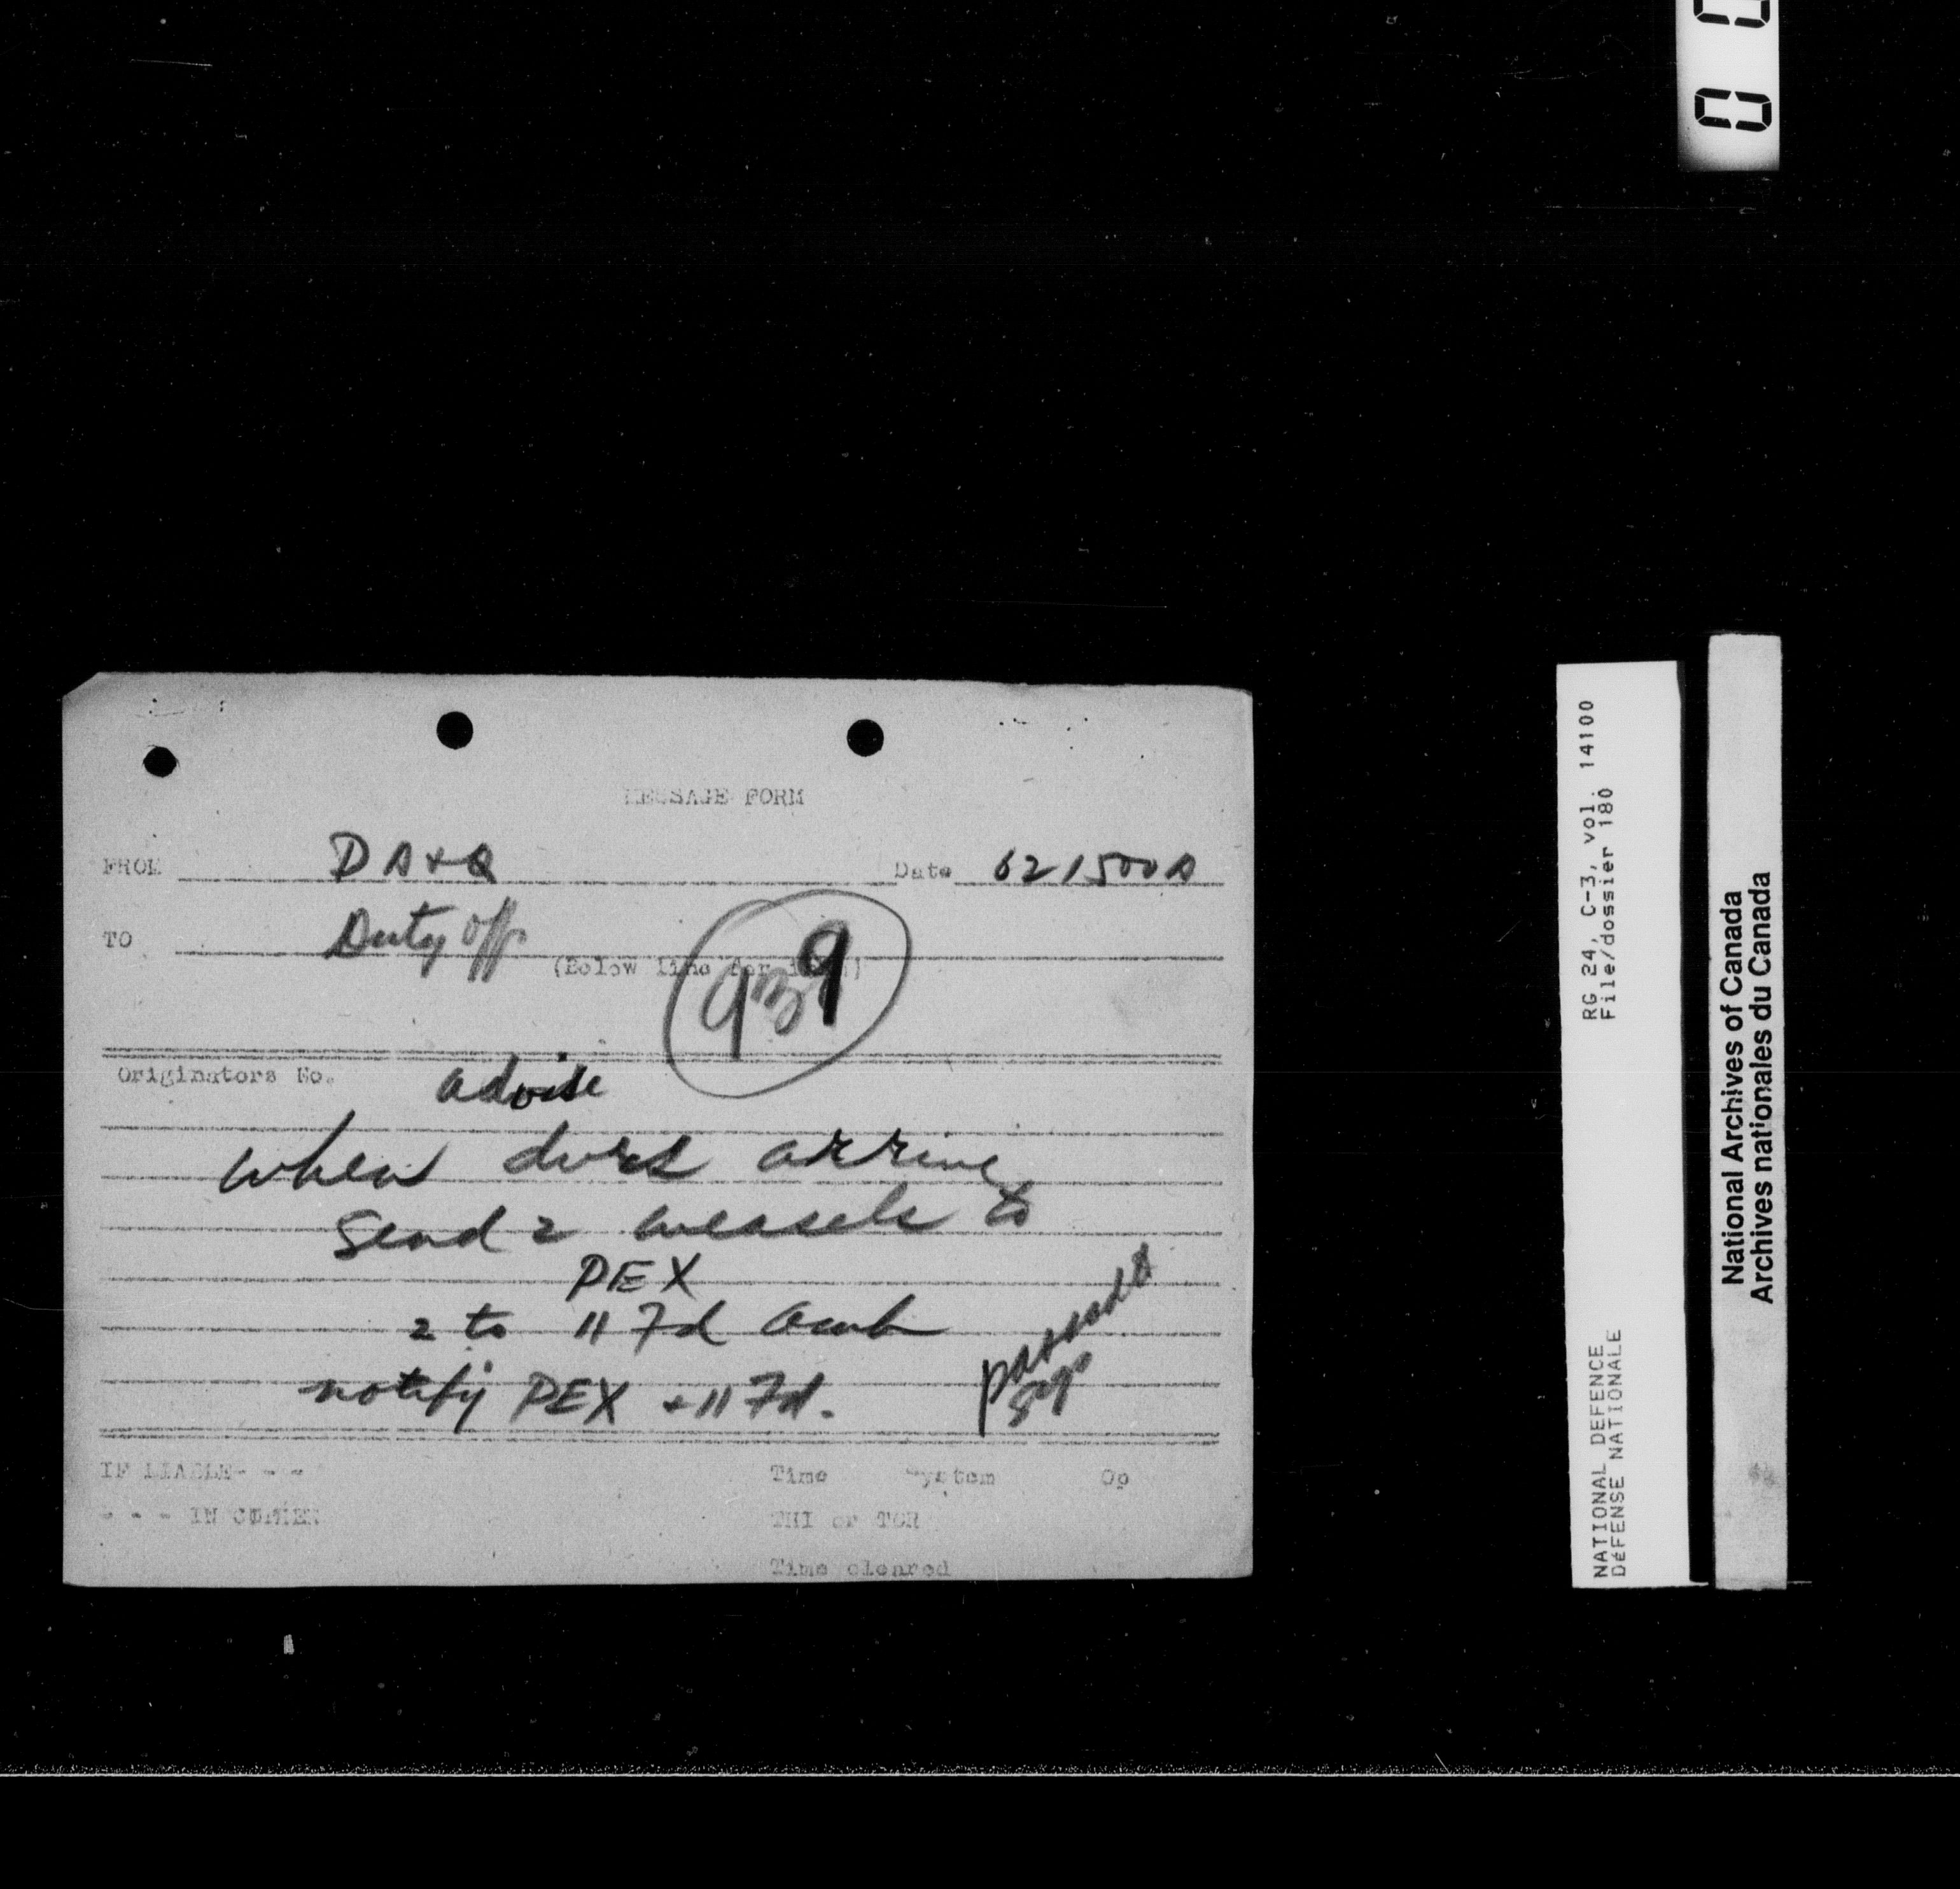 0 0
MESSAGE FORM
FROM D A + Q Date 021500A
TO Duty off
(Below line for
939
Originators No. advise
when arrive
Send 2 weasels to
PEX
2 to 11 Fd Amb
notify PEX + 11 Fd.
IF LIABLE- - - Time System Op
- - - IN CIPHER THI or TOR
Time cleared
RG 24, C-3, vol. 14100
File/dossier 180
NATIONAL DEFENCE
DéFENSE NATIONALE
National Archives of Canada
Archives nationales du Canada